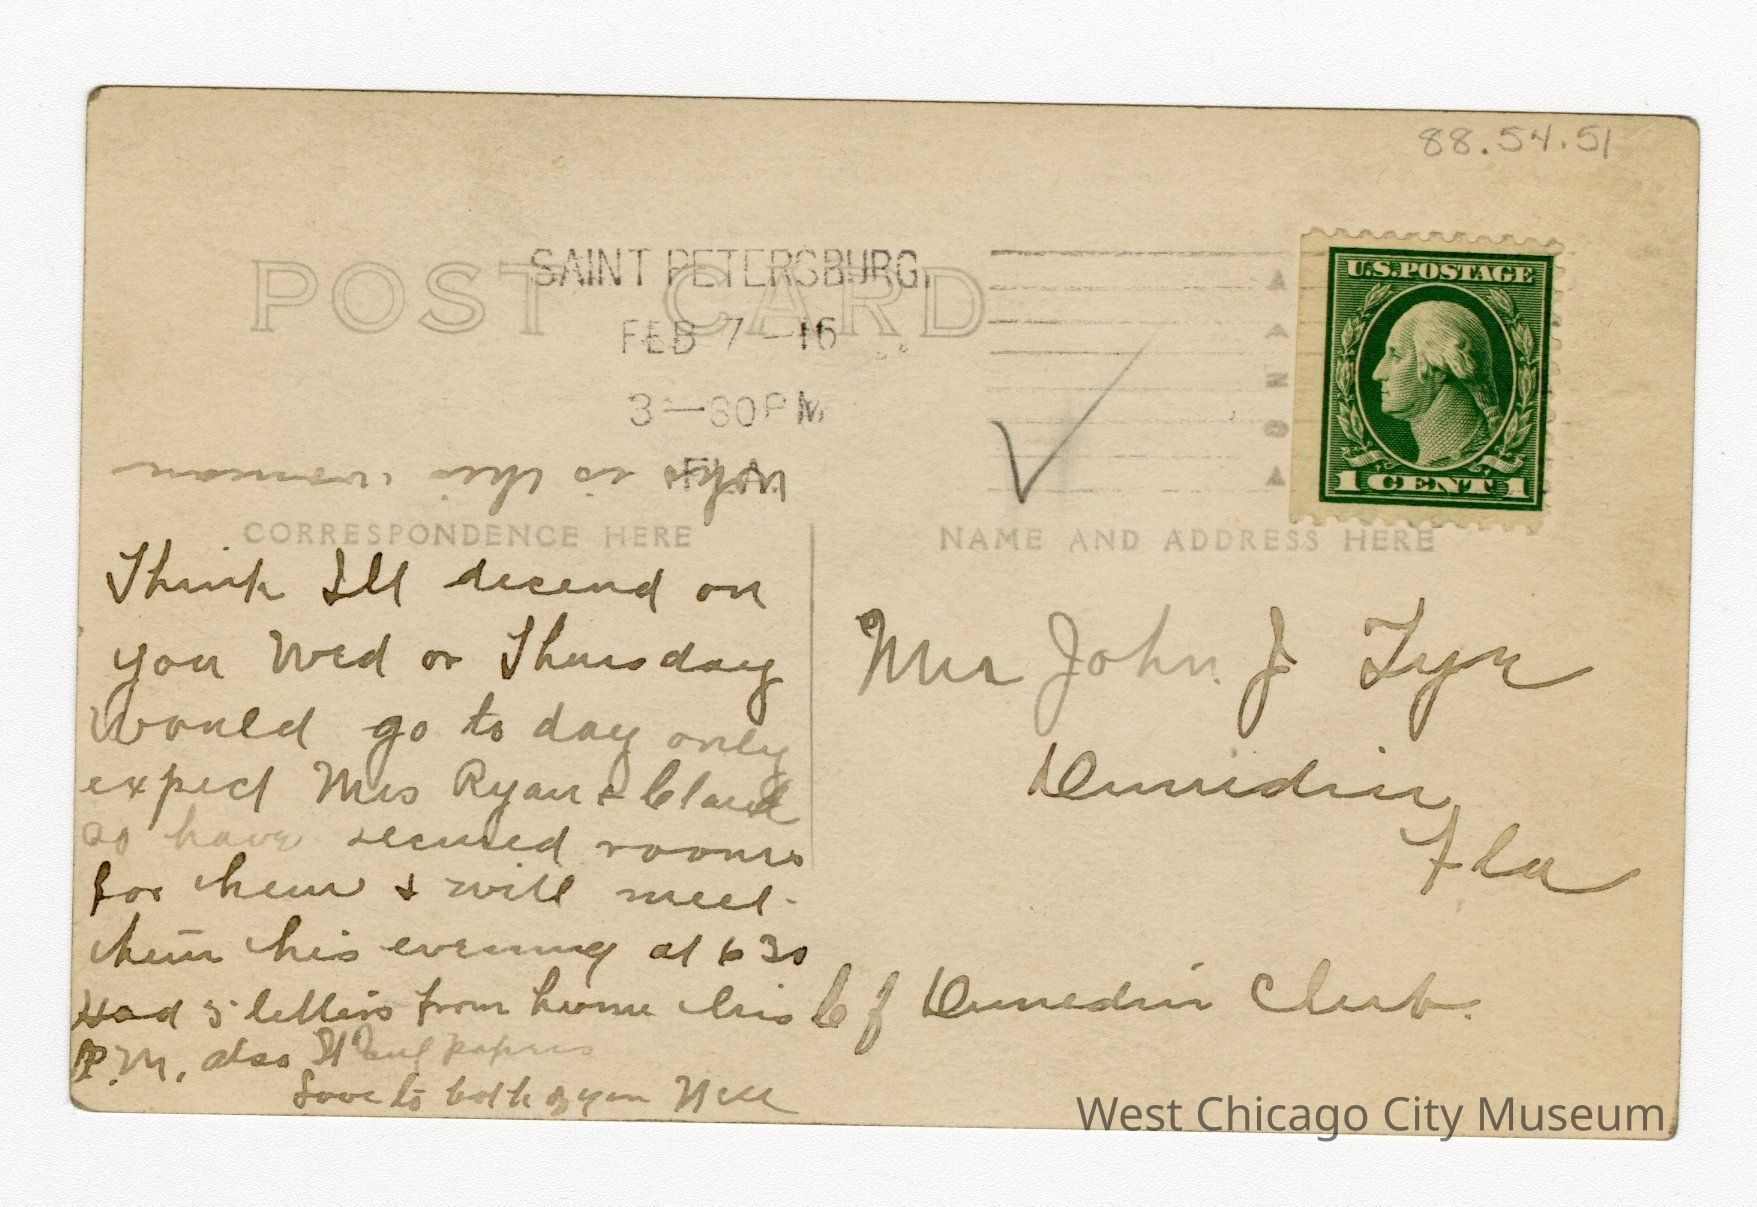 88.54.51
POST CARD
SAINT PETERSBURG,
FEB 7 - 16
3-30PM
FLA.
U.S.POSTAGE
1 CENT 1
who is this woman
CORRESPONDENCE HERE
NAME AND ADDRESS HERE
Think I'll decend on
you Wed or Thursday
would go to day only
expect Mrs Ryan &
as have secured rooms
for them & will meet
them this evening at 6 30
Had 5 letters from home this
P.M. also St Paul papers
Love to both of you
Mrs John J
Dunedin
Fla
Dunedin Club.
West Chicago City Museum